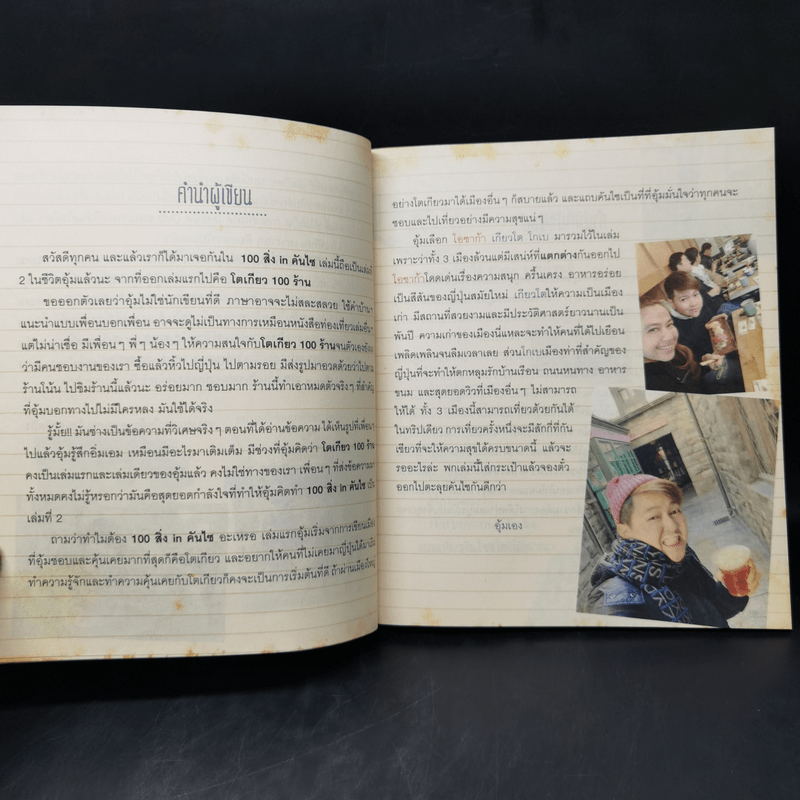 คำนำผู้เขียน
สวัสดีทุกคน และแล้วเราก็ได้มาเจอกันใน 100 สิ่ง in คันไซ เล่มนี้ถือเป็นเล่มที่
2 ในชีวิตอุ้มแล้วนะ จากที่ออกเล่มแรกไปคือ โตเกียว 100 ร้าน
ขอออกตัวเลยว่าอุ้มไม่ใช่นักเขียนที่ดี ภาษาอาจจะไม่สละสลวย ใช้คำบ้านๆ
แนะนำแบบเพื่อนบอกเพื่อน อาจจะดูไม่เป็นทางการเหมือนหนังสือท่องเที่ยวเล่มอื่นๆ
แต่ไม่น่าเชื่อ มีเพื่อนๆ พี่ๆ น้องๆ ให้ความสนใจกับโตเกียว 100 ร้านจนตัวเองยัง
ว่ามีคนชอบงานของเรา ซื้อแล้วหิ้วไปญี่ปุ่น ไปตามรอย มีส่งรูปมาอวดด้วยว่าไปตาม
ร้านโน้น ไปชิมร้านนี้แล้วนะ อร่อยมาก ชอบมาก ร้านนี้ทำเอาหมดตัวจริงๆ ที่สำคัญ
ที่อุ้มบอกทางไปไม่มีใครหลง มันใช้ได้จริง
รู้มั้ย!! มันช่างเป็นข้อความที่วิเศษจริงๆ ตอนที่ได้อ่านข้อความ ได้เห็นรูปที่เพื่อนๆ
ไปแล้วอุ้มรู้สึกอิ่มเอม เหมือนมีอะไรมาเติมเต็ม มีช่วงที่อุ้มคิดว่า โตเกียว 100 ร้าน
คงเป็นเล่มแรกและเล่มเดียวของอุ้มแล้ว คงไม่ใช่ทางของเรา เพื่อนๆ ที่ส่งข้อความมา
ทั้งหมดคงไม่รู้หรอกว่ามันคือสุดยอดกำลังใจที่ทำให้อุ้มคิดทำ 100 สิ่ง in คันไซ เป็น
เล่มที่ 2
ถามว่าทำไมต้อง 100 สิ่ง in คันไซ อะเหรอ เล่มแรกอุ้มเริ่มจากการเขียนเมือง
ที่อุ้มชอบและคุ้นเคยมากที่สุดก็คือโตเกียว และอยากให้คนที่ไม่เคยมาญี่ปุ่นได้มา
ทำความรู้จักและทำความคุ้นเคยกับโตเกียวก็คงจะเป็นการเริ่มต้นที่ดี ถ้าผ่านเมืองใหญ่
อย่างโตเกียวมาได้เมืองอื่นๆ ก็สบายแล้ว และแถบคันไซเป็นที่ที่อุ้มมั่นใจว่าทุกคนจะ
ชอบและไปเที่ยวอย่างมีความสุขแน่ๆ
อุ้มเลือก โอซาก้า เกียวโต โกเบ มารวมไว้ในเล่ม
เพราะว่าทั้ง 3 เมืองล้วนแต่มีเสน่ห์ที่แตกต่างกันออกไป
โอซาก้าโดดเด่นเรื่องความสนุก ครื้นเครง อาหารอร่อย
เป็นสีสันของญี่ปุ่นสมัยใหม่ เกียวโตให้ความเป็นเมือง
เก่า มีสถานที่สวยงามและมีประวัติศาสตร์ยาวนานเป็น
พันปี ความเก่าของเมืองนี่แหละจะทำให้คนที่ได้ไปเยือน
เพลิดเพลินจนลืมเวลาเลย ส่วนโกเบเมืองท่าที่สำคัญของ
ญี่ปุ่นที่จะทำให้ตกหลุมรักบ้านเรือน ถนนหนทาง อาหาร
ขนม และสุดยอดวิวที่เมืองอื่นๆ ไม่สามารถ
ให้ได้ ทั้ง 3 เมืองนี้สามารถเที่ยวด้วยกันได้
ในทริปเดียว การเที่ยวครั้งหนึ่งจะมีสักกี่ที่กัน
เชียวที่จะให้ความสุขได้ครบขนาดนี้ แล้วจะ
รออะไรล่ะ พกเล่มนี้ใส่กระเป๋าแล้วจองตั๋ว
ออกไปตะลุยคันไซกันดีกว่า
อุ้มเอง